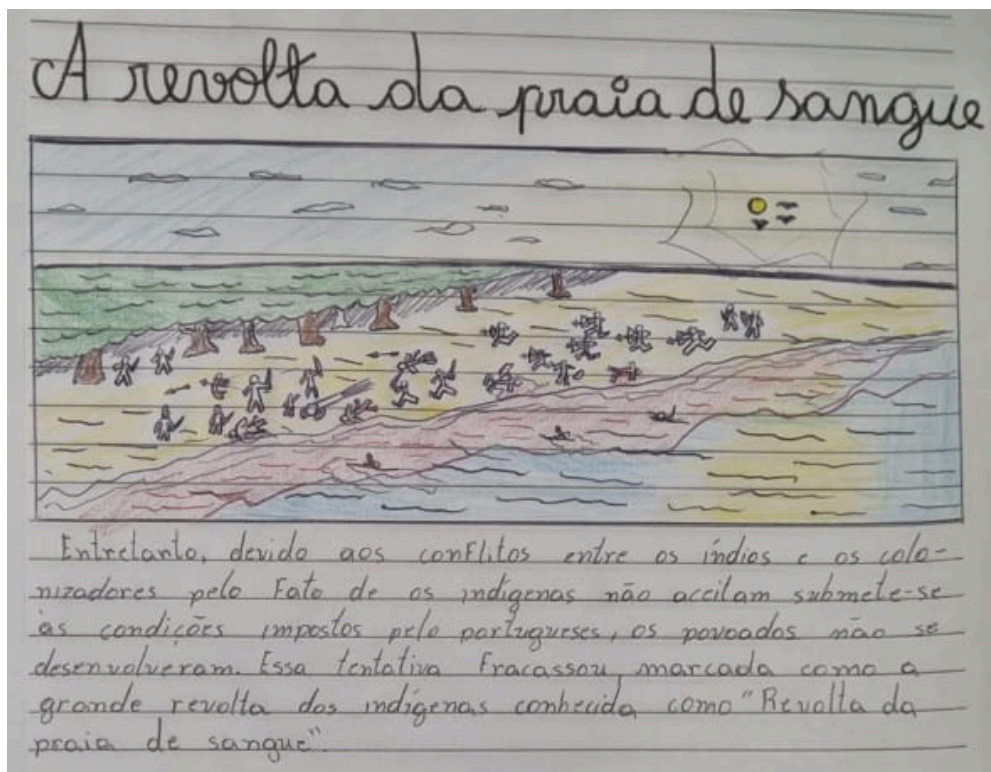 A revolta da praia de sangue
Entretanto, devido aos conflitos entre os índios e os colo-
nizadores pelo Fato de os indígenas não aceitam submete-se
às condições impostos pelo portugueses, os povoados não se
desenvolveram. Essa tentativa Fracassou, marcada como a
grande revolta dos indígenas conhecida como "Revolta da
praia de sangue".